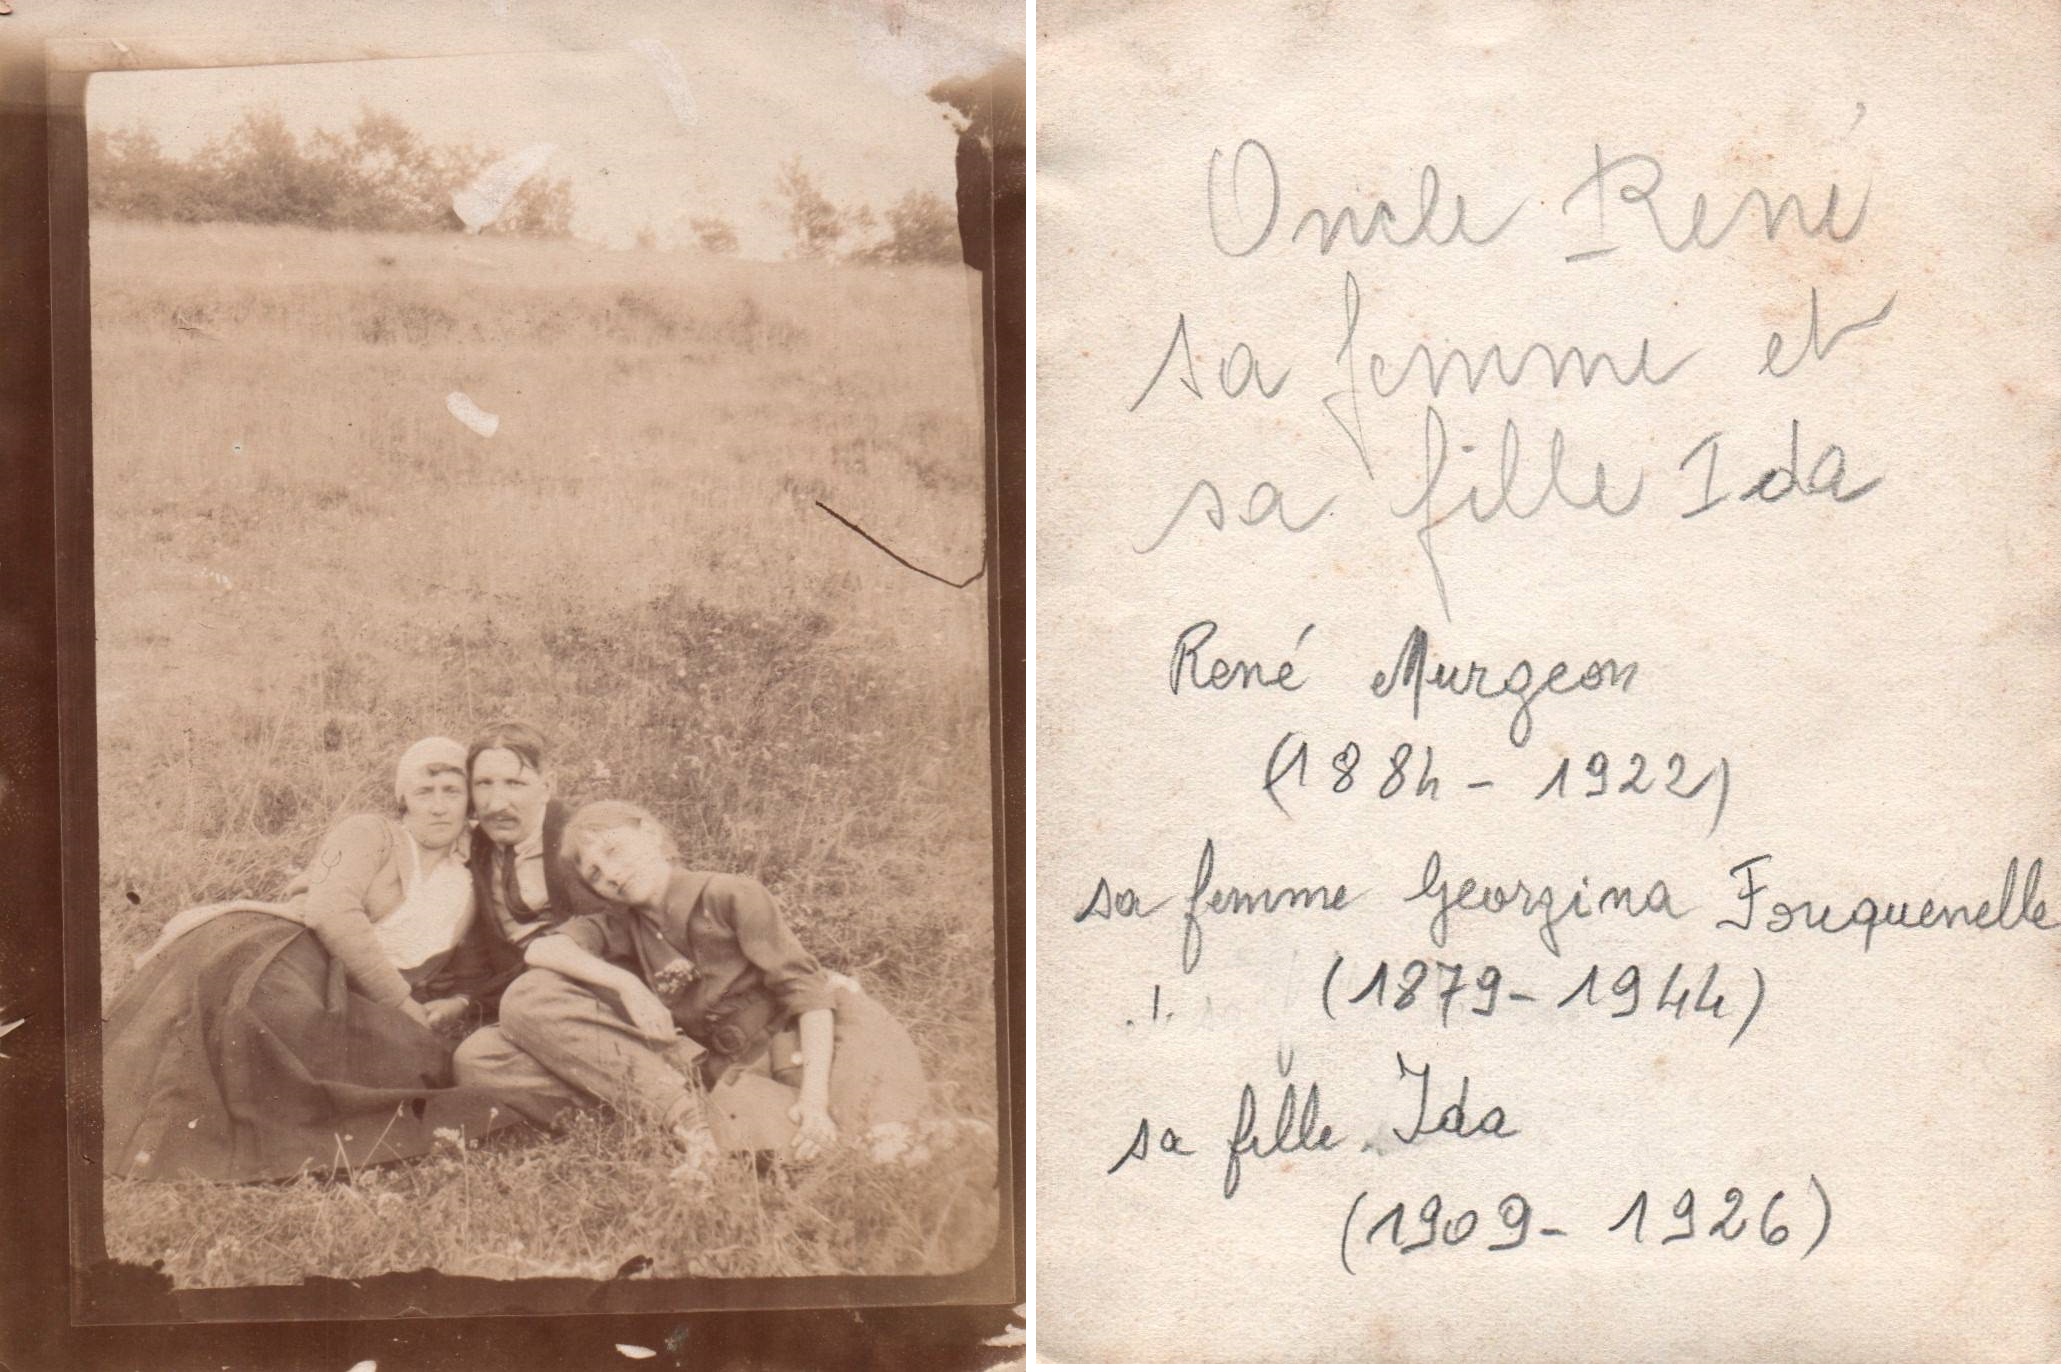 Oncle René
sa femme et
sa fille Ida
René Murgeon
(1884 - 1922)
sa femme Georgina Fouquenelle
(1879 - 1944)
sa fille Ida
(1909 - 1926)